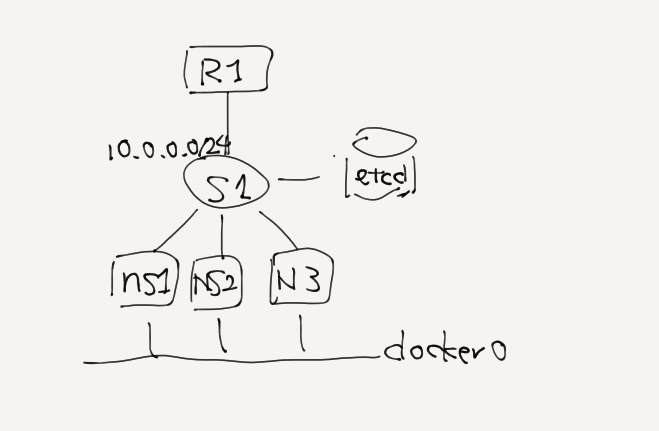 R1
10.0.0.0/24
S1
etcd
ns1
NS2
N3
docker0